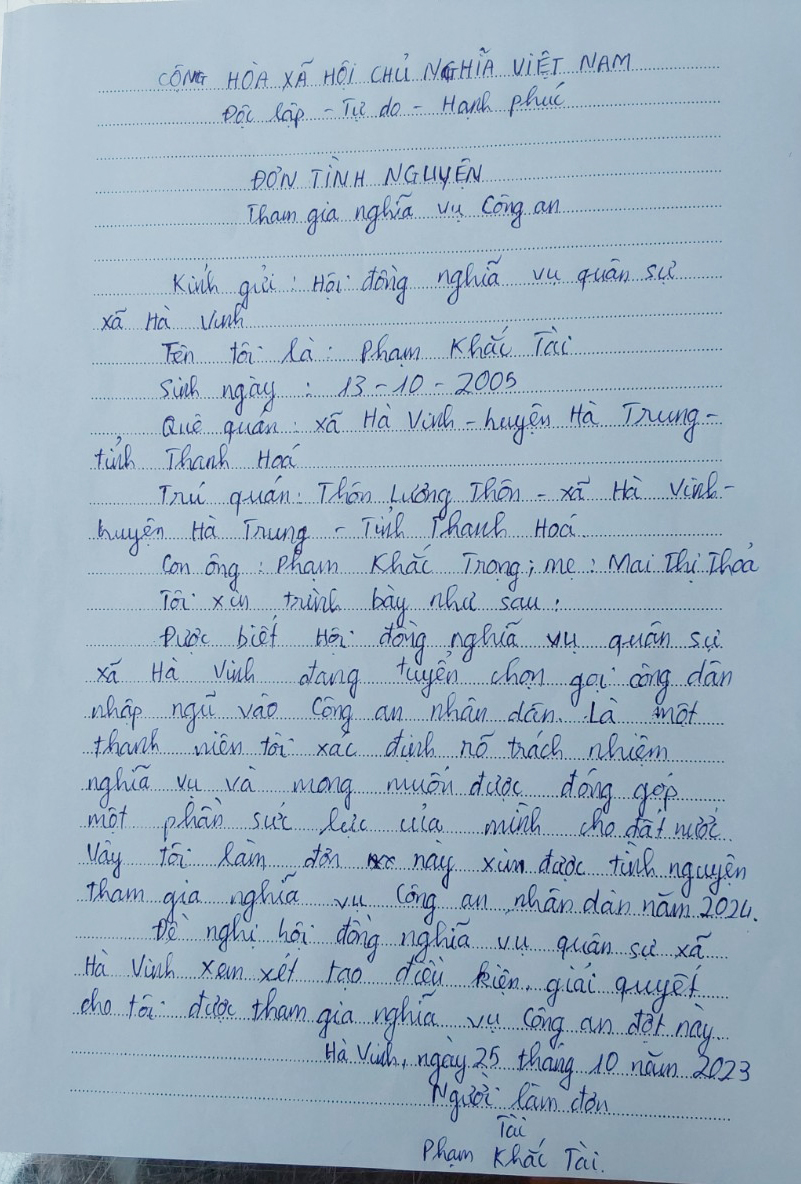 CỘNG HÒA XÃ HỘI CHỦ NGHĨA VIỆT NAM
Độc lập - Tự do - Hạnh phúc
ĐƠN TÌNH NGUYỆN
Tham gia nghĩa vụ Công an
Kính gửi : Hội đồng nghĩa vụ quân sự
xã Hà Vinh
Tên tôi là : Phạm Khắc Tài
Sinh ngày : 13 - 10 - 2005
Quê quán : xã Hà Vinh - huyện Hà Trung -
tỉnh Thanh Hoá
Trú quán : Thôn Lương Thôn - xã Hà Vinh -
huyện Hà Trung - Tỉnh Thanh Hoá.
Con ông : Phạm Khắc Trọng ; mẹ : Mai Thị Thoả
Tôi xin trình bày như sau :
Được biết Hội đồng nghĩa vụ quân sự
xã Hà Vinh đang tuyển chọn gọi công dân
nhập ngũ vào Công an nhân dân. Là một
thanh niên tôi xác định rõ trách nhiệm
nghĩa vụ và mong muốn được đóng góp
một phần sức lực của mình cho đất nước.
Vậy tôi làm đơn này xin được tình nguyện
tham gia nghĩa vụ Công an nhân dân năm 2024.
Đề nghị hội đồng nghĩa vụ quân sự xã
Hà Vinh xem xét tạo điều kiện, giải quyết
cho tôi được tham gia nghĩa vụ Công an đợt này.
Hà Vinh, ngày 25 tháng 10 năm 2023
Người làm đơn
Tài
Phạm Khắc Tài.